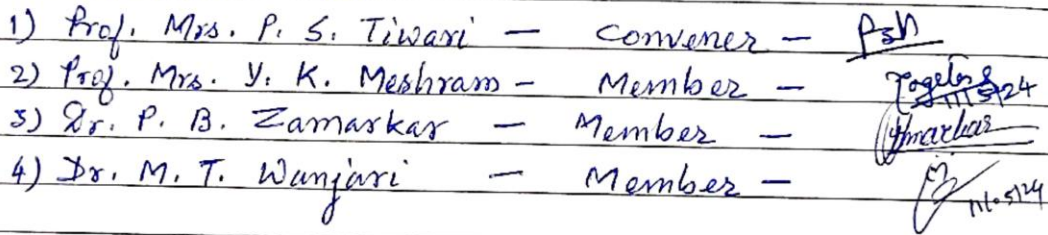 1) Prof. Mrs. P. S. Tiwari – Convener –
2) Prof. Mrs. Y. K. Meshram – Member –
3) Dr. P. B. Zamarkar – Member –
4) Dr. M. T. Wanjari – Member –